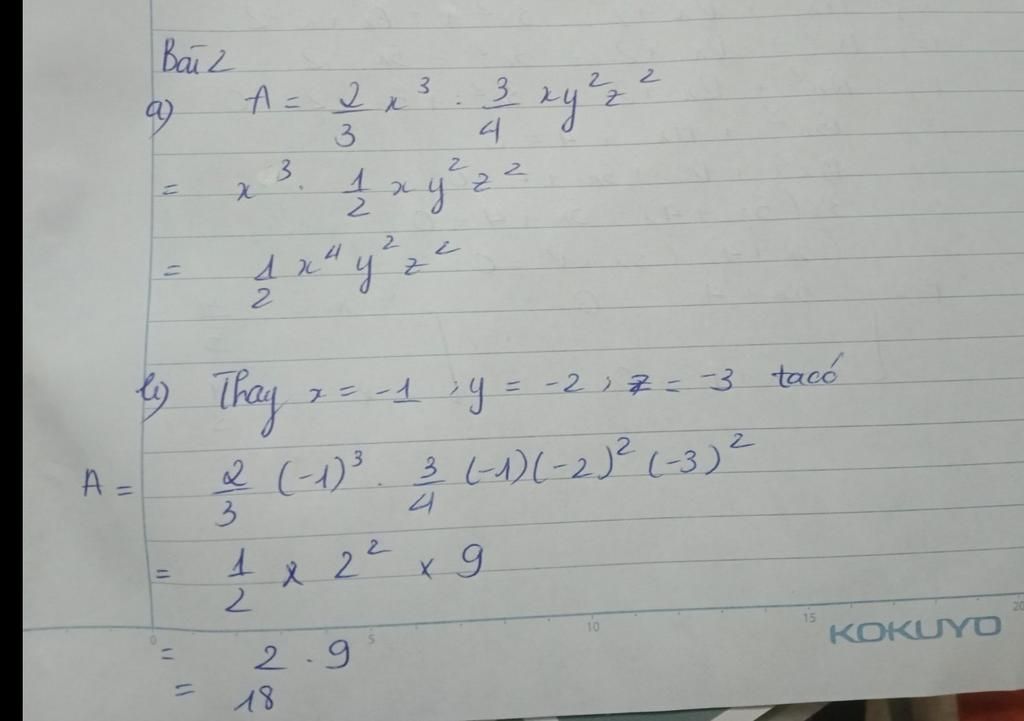 Bài 2
a) A = 2/3 x³ . 3/4 xy²z²
= x³ . 1/2 xy²z²
= 1/2 x⁴y²z²
b) Thay x = -1 ; y = -2 ; z = -3 ta có
A = 2/3 (-1)³ . 3/4 (-1)(-2)² (-3)²
= 1/2 x 2² x 9
0 5 10 15 20
KOKUYO
= 2 . 9
= 18